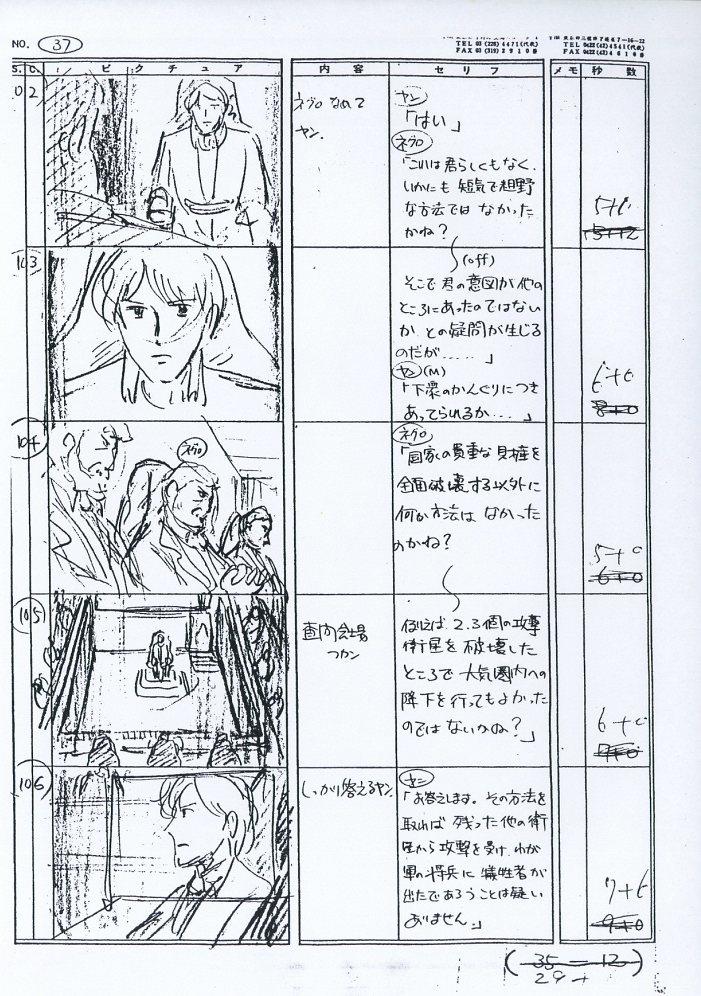 NO. 37
TEL 03 (228) 4471(代表)
FAX 03 (319) 2910
TEL 0422 (42) 4541(代表)
FAX 0422 (42) 4610
S. C. ピクチュア 内容 セリフ メモ 秒数
02
ネグロ なめて
ヤン.
ヤン
「はい」
ネグロ
「これは君らしくもなく、
いかにも 短気で粗野
な方法では なかった
かね?
5+12
103
(off)
そこで 君の意図が 他の
ところにあったのではない
か との疑問が生じる
のだが……」
ヤン(M)
「下衆のかんぐりにつき
あってられるか…」
6+0
8+0
104
ネグロ
ネグロ
「国家の貴重な
全面破壊する以外に
何か方法は なかった
のかね?
5+0
6+0
105
査問会場
フカン
例えば 2.3個の攻撃
衛星を 破壊した
ところで 大気圏内への
降下を行ってもよかった
のでは ないかね?」
6+0
106
しっかり答えるヤン
ヤン
「お答えします。その方法を
取れば 残った他の衛
星から攻撃を受け、わが
軍の将兵に 犠牲者が
出たであろうことは疑い
ありません。」
7+6
9+0
(35 - 12)
29 +